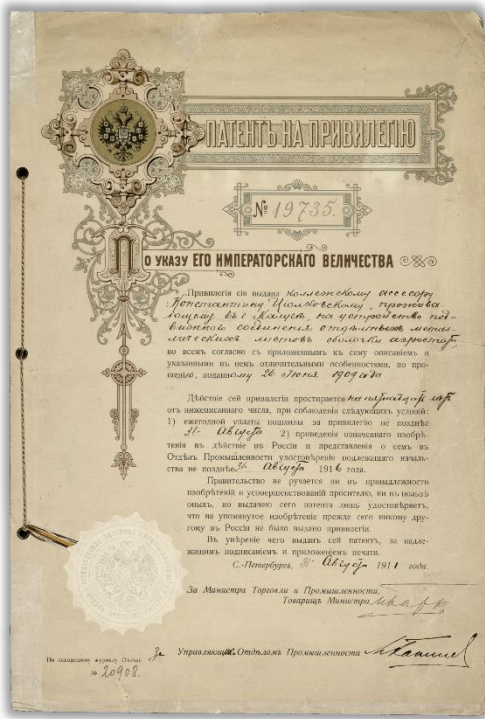 ПАТЕНТЪ НА ПРИВИЛЕГІЮ
№ 19735.
ПО УКАЗУ ЕГО ИМПЕРАТОРСКАГО ВЕЛИЧЕСТВА
Привилегія сія выдана коллежскому ассесору
Константину Ціолковскому, прожива-
ющему въ г. Калугѣ, на устройство под-
вижного соединенія отдѣльныхъ метал-
лическихъ листовъ оболочки аэростата,
во всемъ согласно съ приложеннымъ къ сему описаніемъ и
указанными въ немъ отличительными особенностями, по про-
шенію, поданному 26 іюня 1909 года
Дѣйствіе сей привилегіи простирается на пятнадцать лѣтъ
отъ нижеписаннаго числа, при соблюденіи слѣдующихъ условій:
1) ежегодной уплаты пошлины за привилегію не позднѣе
31 Августа 2) приведенія означеннаго изобрѣ-
тенія въ дѣйствіе въ Россіи и представленія о семъ въ
Отдѣлъ Промышленности удостовѣренія подлежащаго началь-
ства не позднѣе 31 Августа 1916 года.
Правительство не ручается ни въ принадлежности
изобрѣтеній и усовершенствованій просителю, ни въ пользѣ
оныхъ, но выдачею сего патента лишь удостовѣряетъ,
что на упомянутое изобрѣтеніе прежде сего никому дру-
гому въ Россіи не было выдано привилегіи.
Въ увѣреніе чего выданъ сей патентъ, за надле-
жащимъ подписаніемъ и приложеніемъ печати.
С.-Петербургъ, 31 Августа 1911 года.
За Министра Торговли и Промышленности,
Товарищъ Министра
За Управляющаго Отдѣломъ Промышленности
По исходящему журналу
№ 20908.